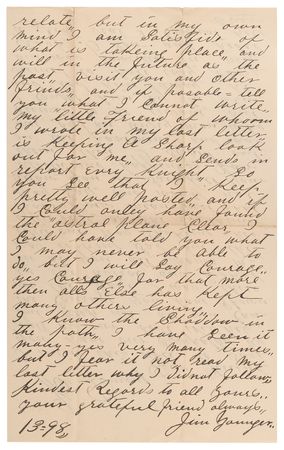 relate, but in my own
mind I am Satisfids of
what is takeing place, and
will in the future as the
past, visit you and other
frinds, and if posable - tell
you what I Connot write,
my little friend of whoom
I wrote in my last letter,
is keeping a Sharp look
out for me, and Sends in
report Enry Knight, So
you See that I keep
pretty well posted, and if
I Could only have found
the "astral plane Clear I
Could have told you what
I may never be able to
do, but I will Say Courage,
yes Courage, for that more
then all Else has kept
many others lining,
I know the Shaddow in
the path, I have Seen it
many - yes very many times,
but I fear it not, read my
last letter, why I did not follow,
Kindest Regards to all yours,
your grateful friend always,
Jim Younger,
13=98,,